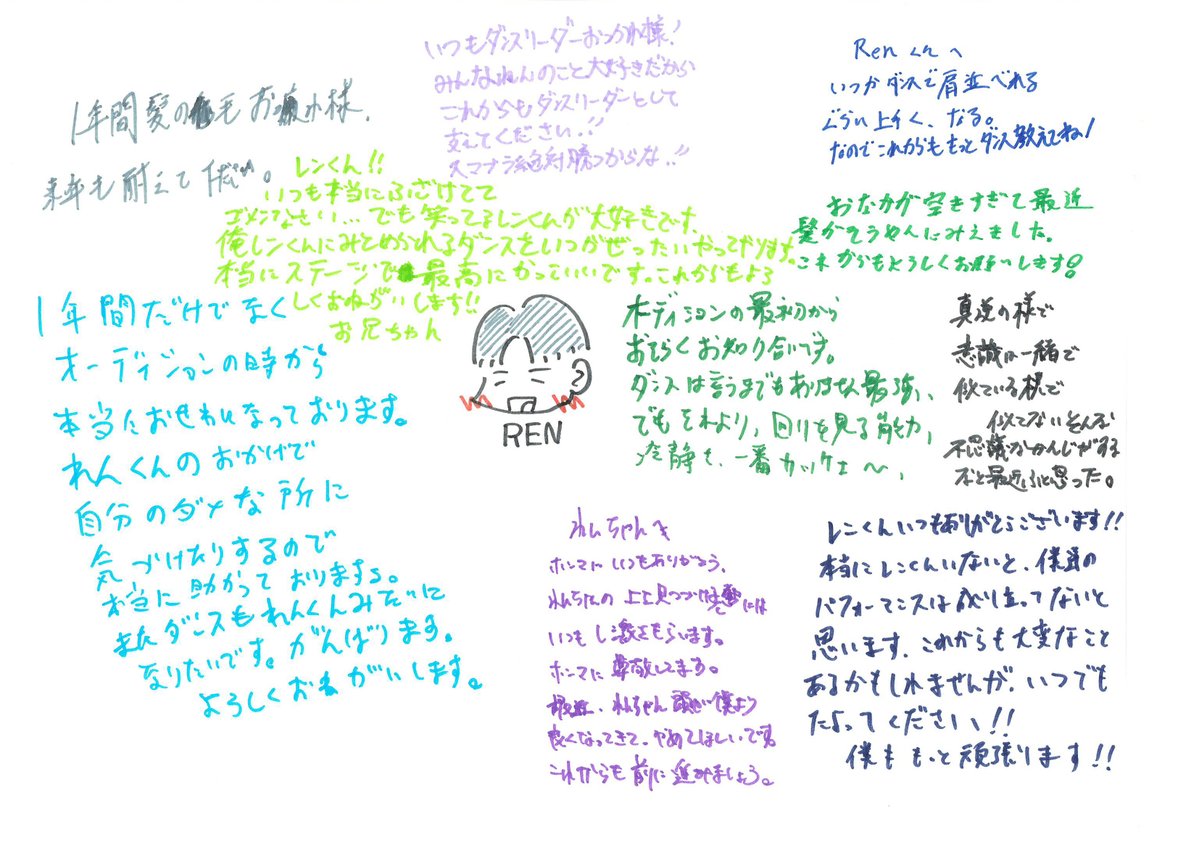 1年間髪の毛お疲れ様.
来年も耐えて下さい。
いつもダンスリーダーおつかれ様!
みんなれんのこと大好きだから
これからもダンスリーダーとして
支えてください!!
スマブラ絶対勝つからな!!
Renくんへ
いつかダンスで肩並べれる
ぐらい上手く、なる。
なのでこれからももっとダンス教えてね!
レンくん!!
いつも本当にふざけてて
ゴメンなさい...でも笑ってるレンくんが大好きです.
俺レンくんにみとめられるダンスをいつかぜったいやってやります。
本当にステージで最高にかっていいです。これからもよろ
しくおねがいします!!
お兄ちゃん
おなかが空きすぎて最近
髪がそうめんにみえました.
これからもよろしくお願いします!
1年間だけでなく
オーディションの時から
本当におせわになっております。
れんくんのおかげで
自分のダメな所に
気づけたりするので
本当に助かっております。
またダンスもれんくんみたいに
なりたいです。がんばります。
よろしくおねがいします。
REN
オーディションの最初から
おそらくお知り合いです。
ダンスは言うまでもありません最強、
でもそれより、回りを見る能力、
冷静さ、一番カッケェ〜、
真逆の様で
意識は一緒で
似ている様で
似てないそんな
不思議なかんじがする
なと最近ふと思った。
れんちゃんへ
ホンマにいつもありがとう、
れんちゃんの上を見つづける姿には
いつもし激をもらいます。
ホンマに尊敬してます。
最近、れんちゃん頭が僕より
良くなってきて、やめてほしいです。
これからも前に進みましょう。
レンくんいつもありがとうございます!!
本当にレンくんいないと、僕達の
パフォーマンスは成り立ってないと
思います、これからも大変なこと
あるかもしれませんが、いつでも
たよってください!!
僕ももっと頑張ります!!